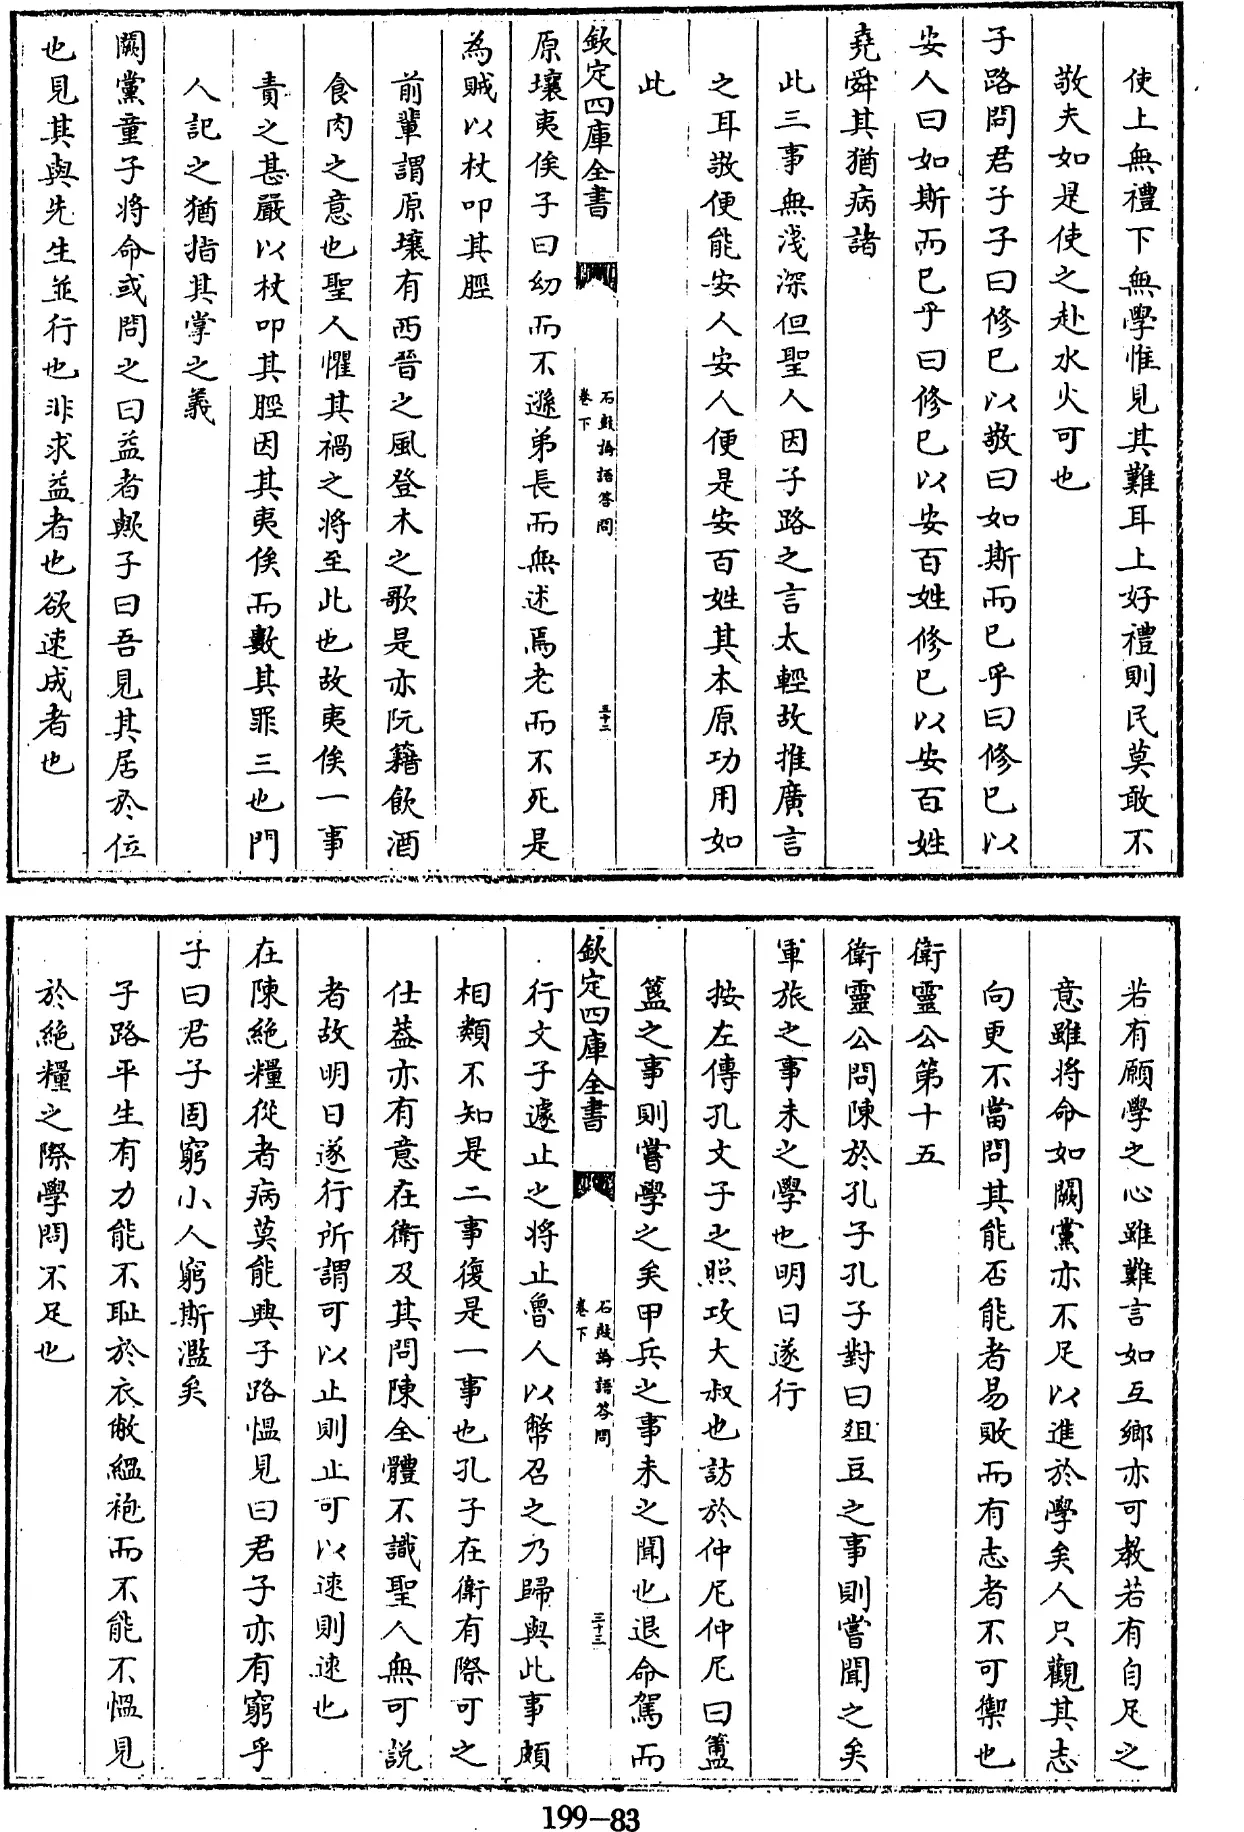 使上無禮下無學惟見其難耳上好禮則民莫敢不
敬夫如是使之赴水火可也
子路問君子子曰修已以敬曰如斯而已乎曰修已以
安人曰如斯而已乎曰修已以安百姓修已以安百姓
堯舜其猶病諸
此三事無淺深但聖人因子路之言太輕故推廣言
之耳敬便能安人安人便是安百姓其本原功用如
此
欽定四庫全書
石鼓論語答問
卷下
三十二
原壤夷俟子曰幼而不遜弟長而無述焉老而不死是
為賊以杖叩其脛
前輩謂原壤有西晉之風登木之歌是亦阮籍飲酒
食肉之意也聖人懼其禍之將至此也故夷俟一事
責之甚嚴以杖叩其脛因其夷俟而數其罪三也門
人記之猶指其掌之義
闕黨童子將命或問之曰益者歟子曰吾見其居於位
也見其與先生並行也非求益者也欲速成者也
若有願學之心雖難言如互鄉亦可教若有自足之
意雖將命如闕黨亦不足以進於學矣人只觀其志
向更不當問其能否能者易敗而有志者不可禦也
衛靈公第十五
衛靈公問陳於孔子孔子對曰俎豆之事則嘗聞之矣
軍旅之事未之學也明日遂行
按左傳孔文子之將攻大叔也訪於仲尼仲尼曰簠
簋之事則嘗學之矣甲兵之事未之聞也退命駕而
欽定四庫全書
石鼓論語答問
卷下
三十三
行文子遽止之將止魯人以幣召之乃歸與此事頗
相類不知是二事復是一事也孔子在衛有際可之
仕葢亦有意在衛及其問陳全體不識聖人無可説
者故明日遂行所謂可以止則止可以速則速也
在陳絶糧從者病莫能興子路愠見曰君子亦有窮乎
子曰君子固窮小人窮斯濫矣
子路平生有力能不耻於衣敝緼袍而不能不愠見
於絶糧之際學問不足也
199-83